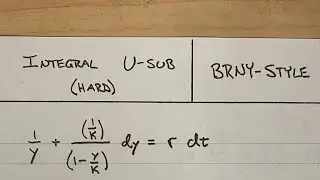 INTEGRAL U-SUB
(HARD)
BRNY-STYLE
1/y + (1/K)/(1-y/K) dy = r dt